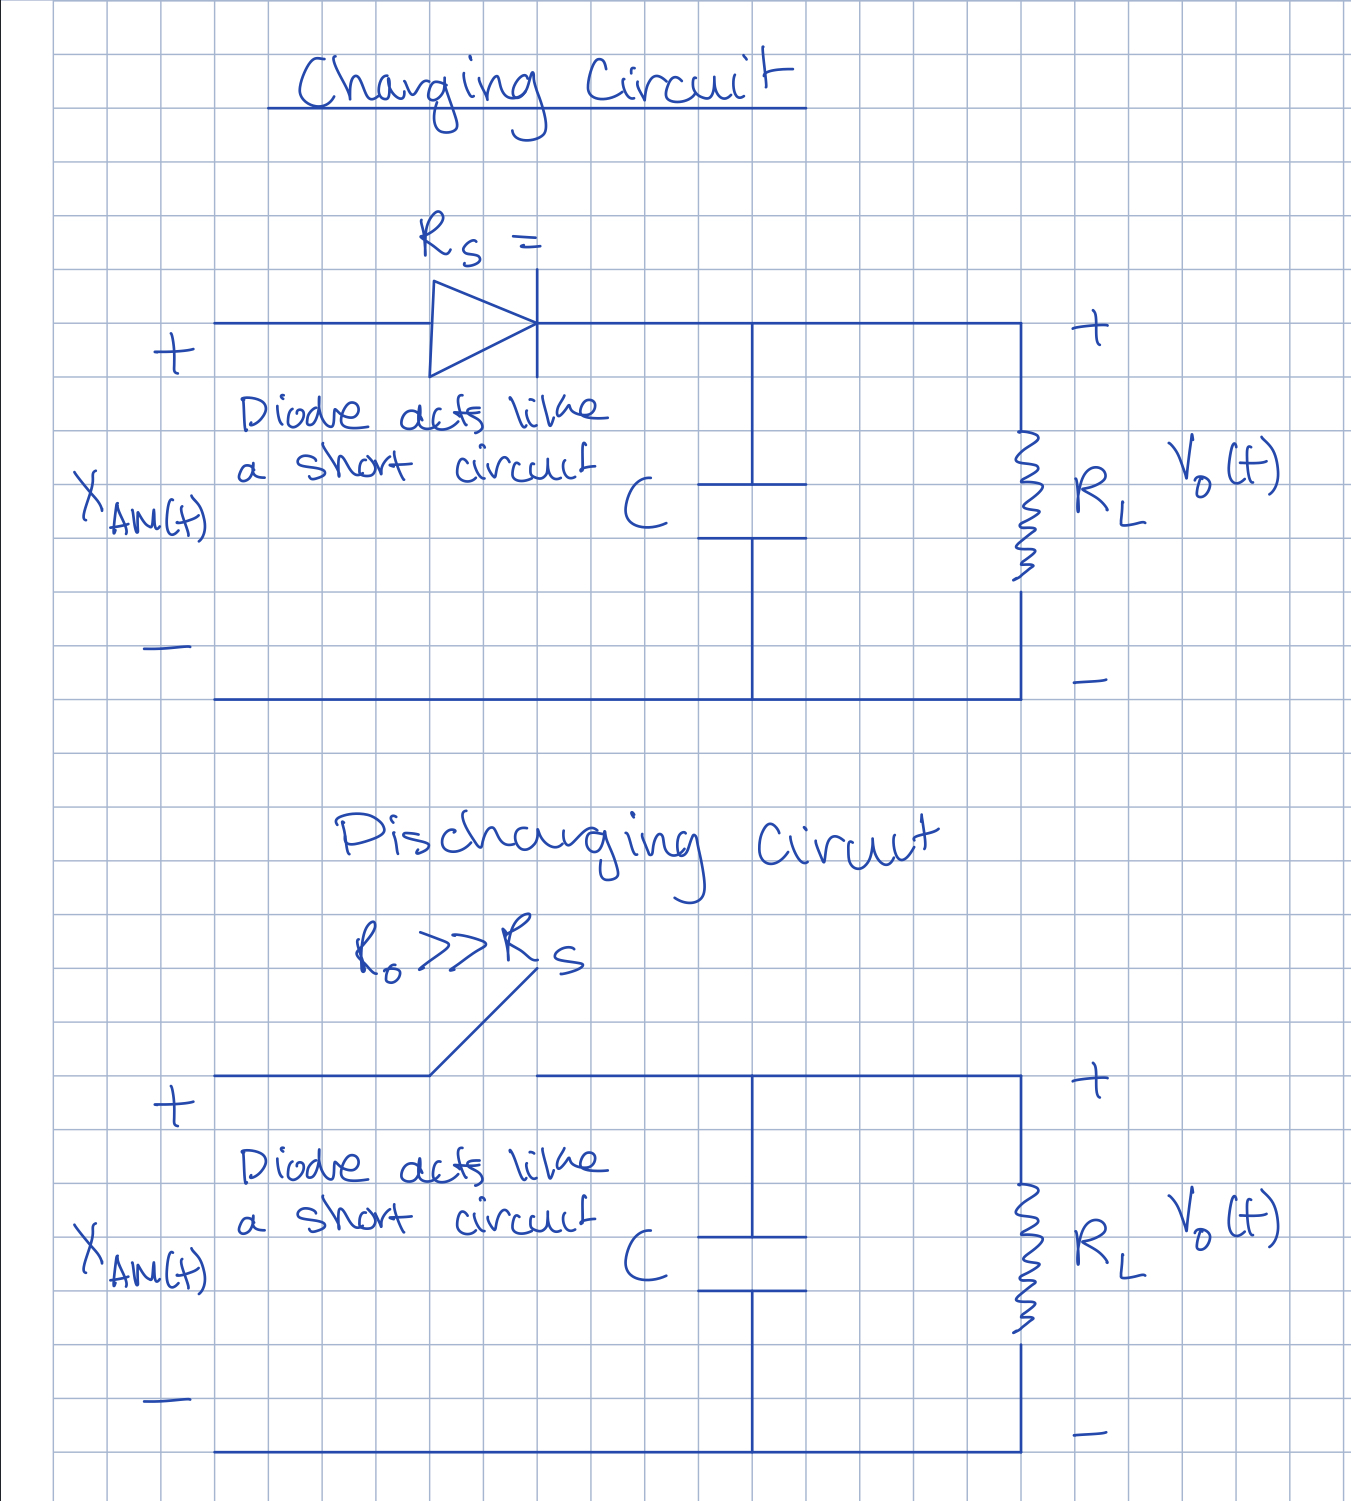 Charging Circuit
R_S =
+
+
Diode acts like
a short circuit
X_AM(t)
C
R_L
V_o(t)
−
−
Discharging Circuit
R_o >> R_S
+
+
Diode acts like
a short circuit
X_AM(t)
C
R_L
V_o(t)
−
−